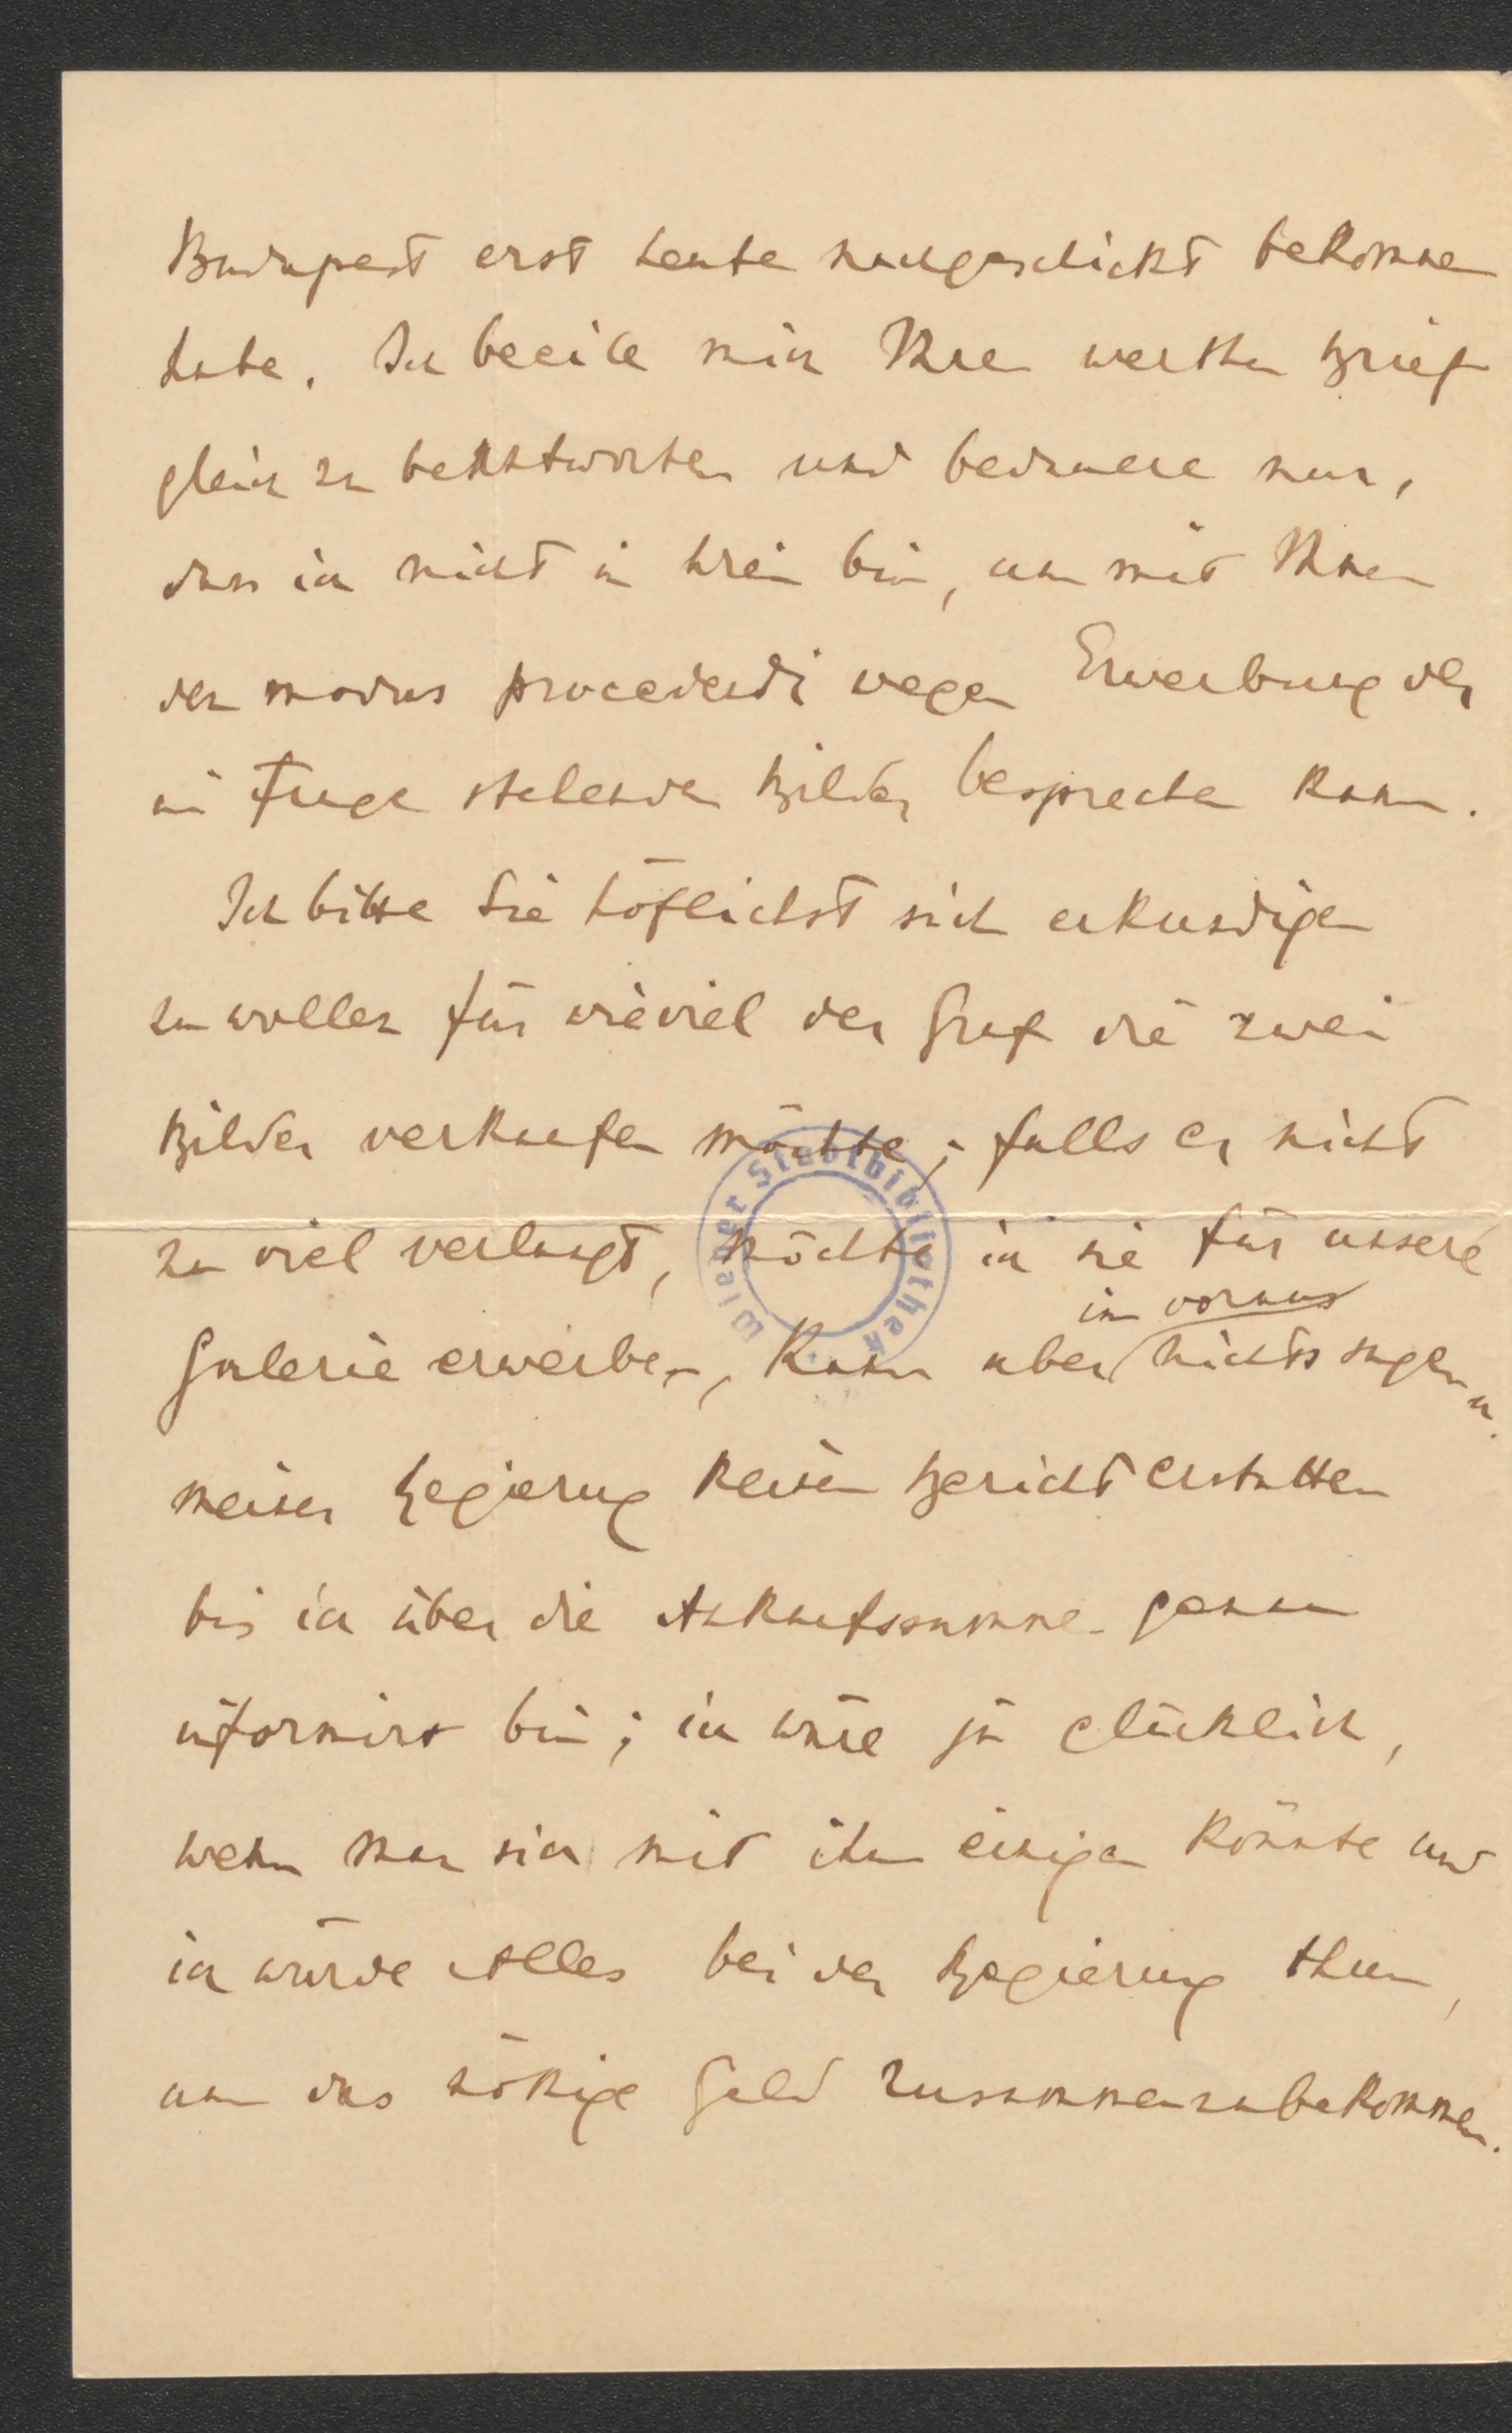 Budapest erst heute nachgeschickt bekommen
habe. Ich beeile mich Ihren werthen Brief
gleich zu beantworten und bedauere nur,
dass ich nicht in Wien bin, um mit Ihnen
den modus procedendi wegen Erwerbung der
in Frage stehenden Bilder besprechen kann.
Ich bitte Sie höflichst sich erkundigen
zu wollen für wieviel der Graf die zwei
Bilder verkaufen möchte; falls er nicht
zu viel verlangt, möchte ich sie für unsere
im voraus
Galerie erwerben, kann aber nichts sagen u.
meiner Regierung keinen Bericht erstatten
bis ich über die Ankaufssumme genau
informirt bin; ich wäre ja glücklich,
wenn man sich mit ihm einigen könnte und
ich würde Alles bei der Regierung thun,
um das nötige Geld zusammenzubekommen.
Wiener Stadtbibliothek